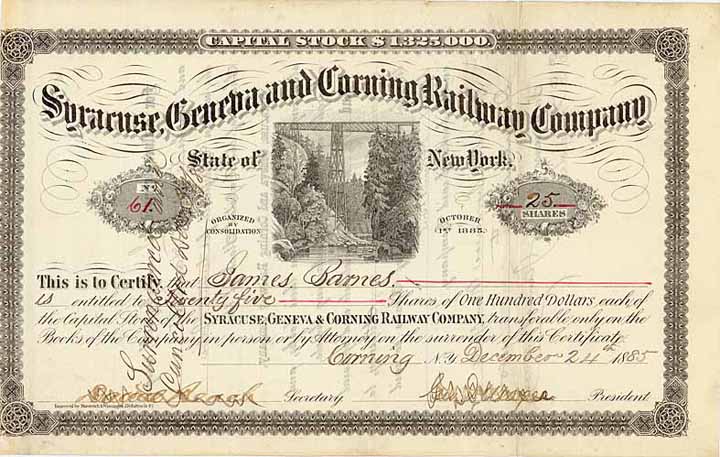 CAPITAL STOCK $1,325,000.
Syracuse, Geneva and Corning Railway Company
State of New York.
No. 61.
25 SHARES
ORGANIZED BY CONSOLIDATION
OCTOBER 1ST 1885.
This is to Certify that James Barnes
is entitled to Twenty five Shares of One Hundred Dollars each of
the Capital Stock of the SYRACUSE, GENEVA & CORNING RAILWAY COMPANY, transferable only on the
Books of the Company in person or by Attorney on the surrender of this Certificate.
Corning N.Y. December 24th 1885
Secretary President
Surrendered
Cancelled